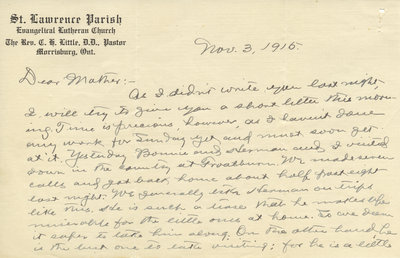 St. Lawrence Parish
Evangelical Lutheran Church
The Rev. C. H. Little, D.D., Pastor
Morrisburg, Ont.
Nov. 3, 1915.
Dear Mother:-
As I didn't write you last night,
I will try to give you a short letter this morn-
ing. Time is precious, however, as I haven't done
any work for Sunday yet and must soon get
at it. Yesterday Bonnie and Herman and I visited
down in the country at Froatburn. We made seven
calls and got back home about half past eight
last night. We generally take Herman on trips
like this. He is such a tease that he makes life
miserable for the little ones at home. So we deem
it safer to take him along. On the other hand, he
is the best one to take visiting; for he is a little